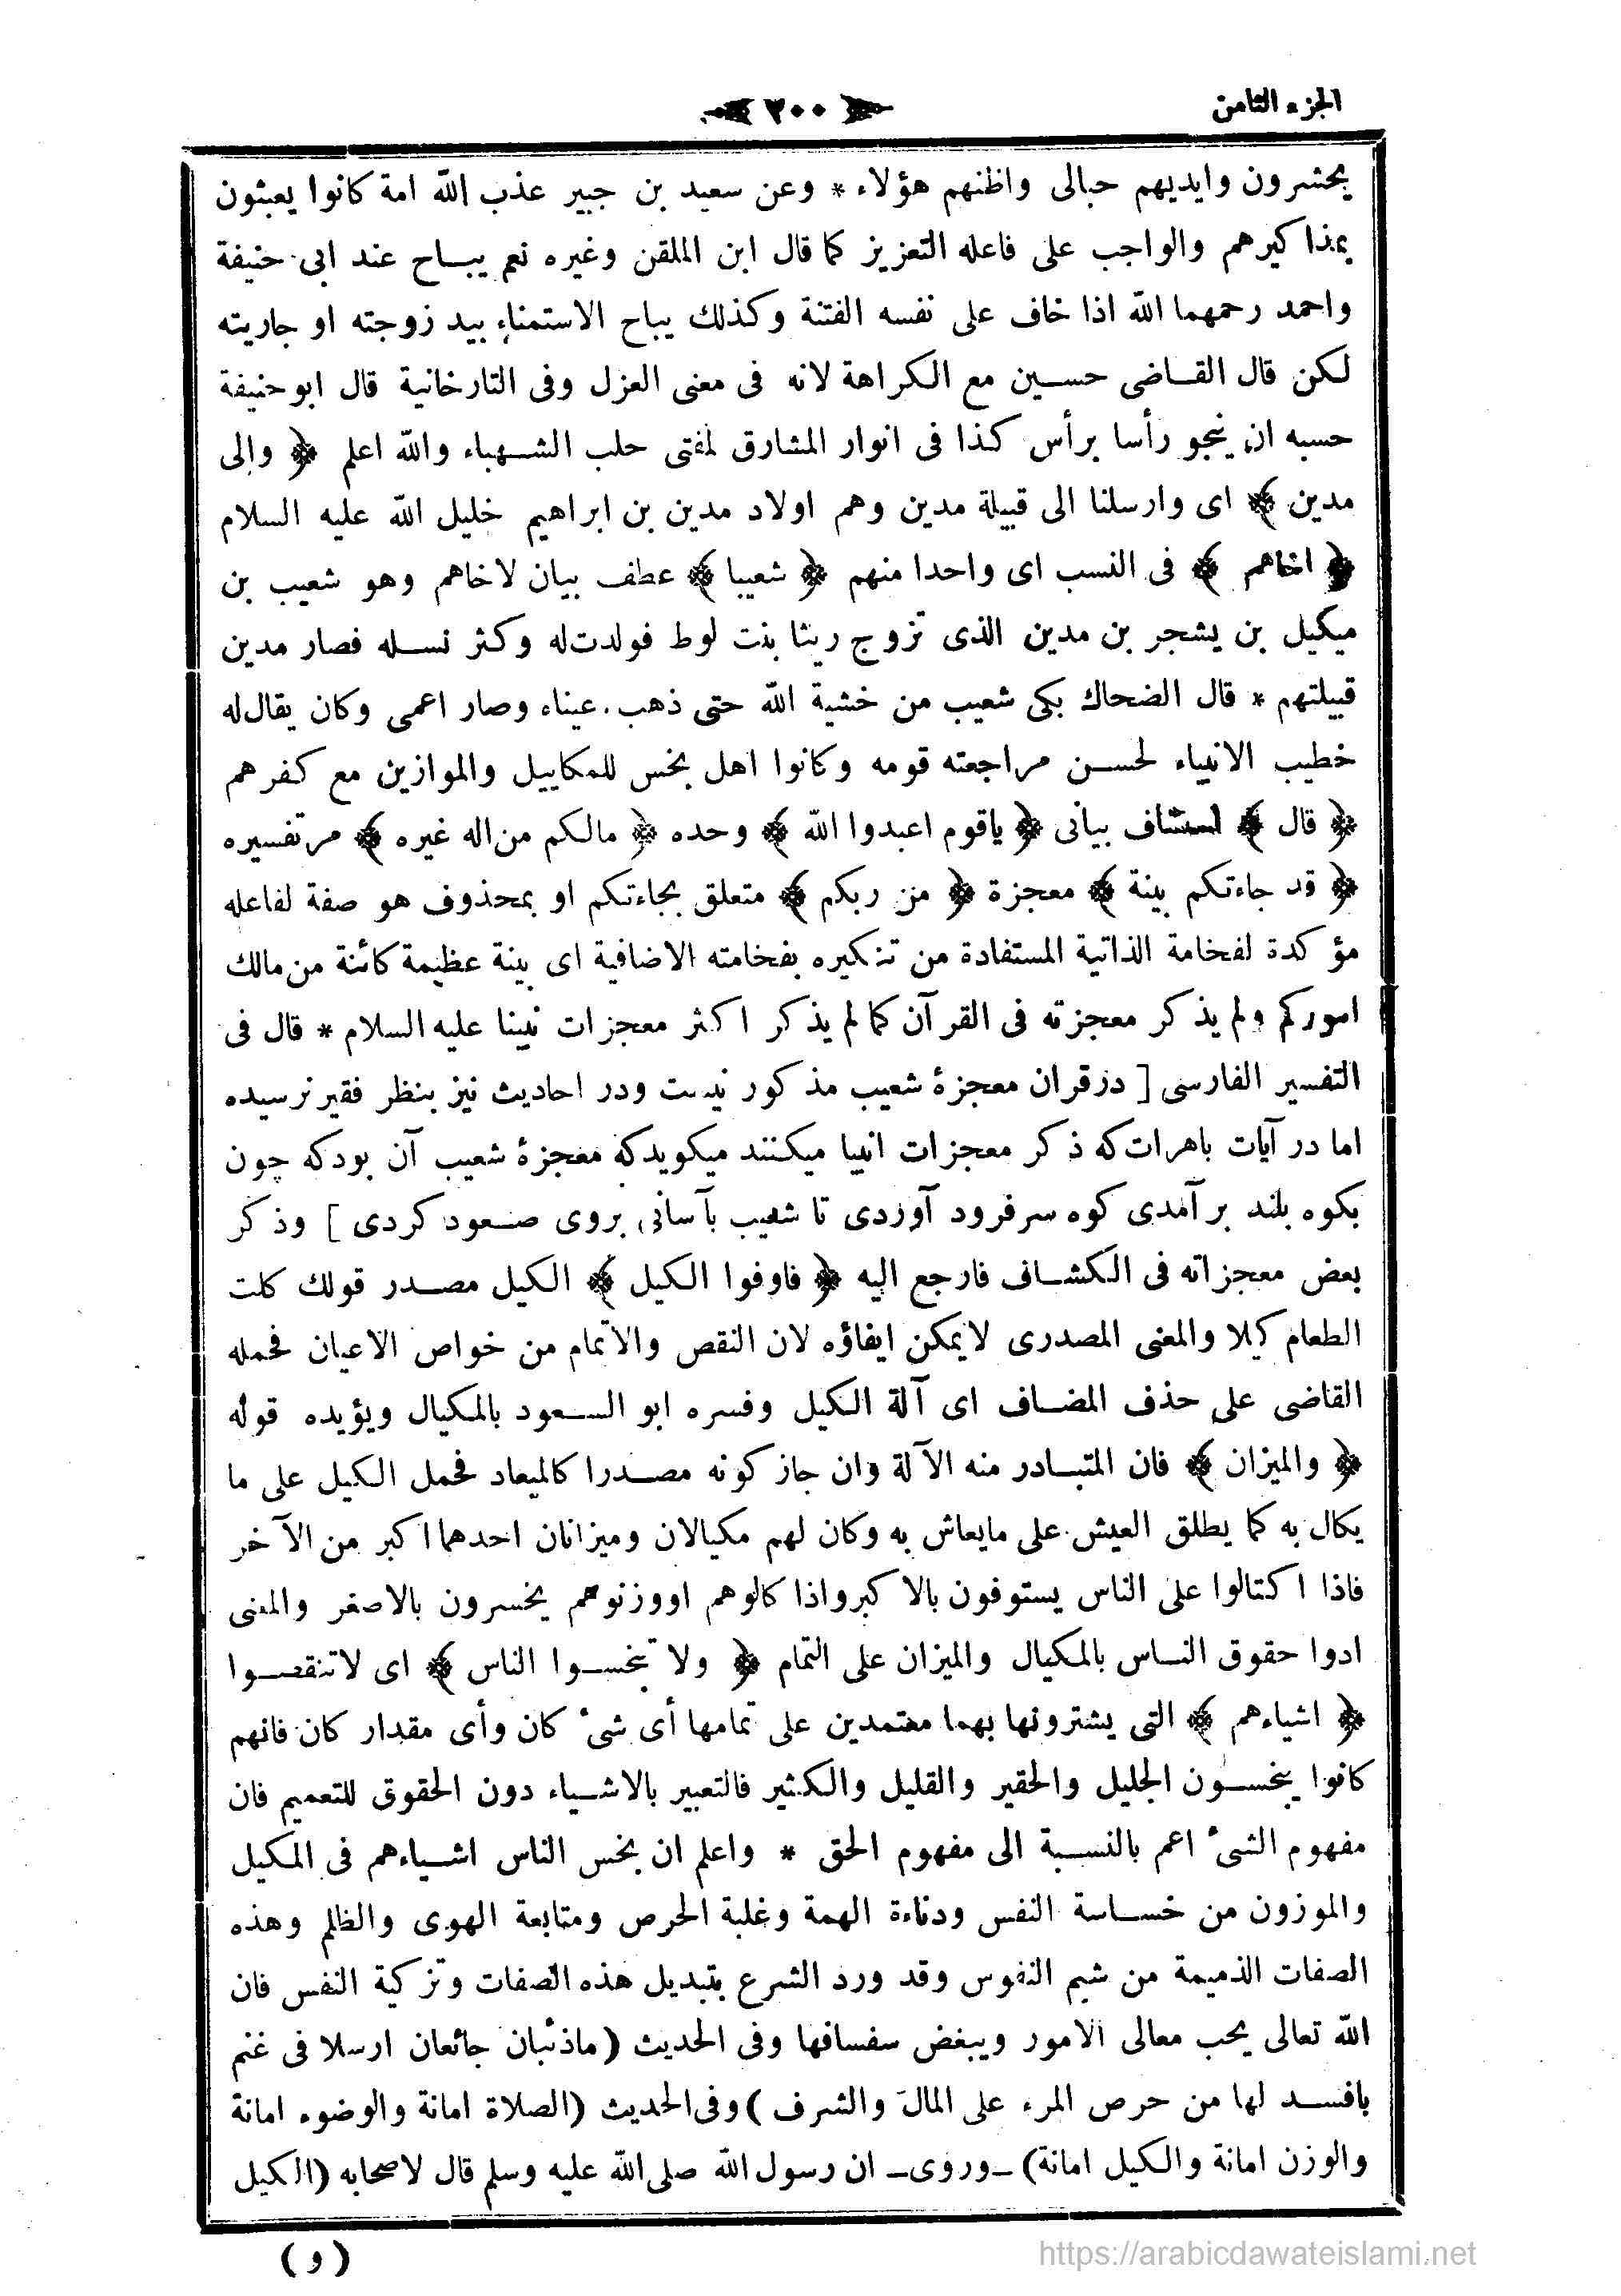 الجزء الثامن
﴿ ٢٠٠ ﴾
يحشرون وايديهم حبالى واظنهم هؤلاء * وعن سعيد بن جبير عذب الله امة كانوا يعبثون
بمذا كيرهم والواجب على فاعله التعزيز كما قال ابن الملقن وغيره نعم يباح عند ابى حنيفة
واحمد رحمهما الله اذا خاف على نفسه الفتنة وكذلك يباح الاستمناء بيد زوجته او جاريته
لكن قال القاضى حسين مع الكراهة لانه فى معنى العزل وفى التارخانية قال ابو حنيفة
حسبه ان ينجو رأسا برأس كذا فى انوار المشارق لمفتى حلب الشهباء والله اعلم ﴿ وإلى
مدين ﴾ اى وارسلنا الى قبيلة مدين وهم اولاد مدين بن ابراهيم خليل الله عليه السلام
﴿ اخاهم ﴾ فى النسب اى واحدا منهم ﴿ شعيبا ﴾ عطف بيان لاخاهم وهو شعيب بن
ميكيل بن يشجر بن مدين الذى تزوج ريثا بنت لوط فولدت له وكثر نسله فصار مدين
قبيلتهم * قال الضحاك بكى شعيب من خشية الله حتى ذهب عيناه وصار اعمى وكان يقال له
خطيب الانبياء لحسن مراجعته قومه وكانوا اهل بخس للمكاييل والموازين مع كفرهم
﴿ قال ﴾ استئناف بيانى ﴿ ياقوم اعبدوا الله ﴾ وحده ﴿ مالكم من اله غيره ﴾ مر تفسيره
﴿ قد جاءتكم بينة ﴾ معجزة ﴿ من ربكم ﴾ متعلق بجاءتكم او بمحذوف هو صفة لفاعله
مؤكدة لفخامة الذاتية المستفادة من تنكيره بفخامته الاضافية اى بينة عظيمة كائنة من مالك
اموركم ولم يذكر معجزته فى القرآن كما لم يذكر اكثر معجزات نبينا عليه السلام * قال فى
التفسير الفارسى [ درقران معجزۀ شعيب مذكور نيست ودر احاديث نيز بنظر فقير نرسيده
اما در آيات باهرات كه ذكر معجزات انبيا ميكنند ميكويدكه معجزۀ شعيب آن بودكه چون
بكوه بلند بر آمدى كوه سرفرود آوردى تا شعيب بآسانى بروى صعود كردى ] وذكر
بعض معجزاته فى الكشاف فارجع اليه ﴿ فاوفوا الكيل ﴾ الكيل مصدر قولك كلت
الطعام كيلا والمعنى المصدرى لايمكن ايفاؤه لان النقص والاتمام من خواص الاعيان فحمله
القاضى على حذف المضاف اى آلة الكيل وفسره ابو السعود بالمكيال ويؤيده قوله
﴿ والميزان ﴾ فان المتبادر منه الآلة وان جاز كونه مصدرا كالميعاد فحمل الكيل على ما
يكال به كما يطلق العيش على مايعاش به وكان لهم مكيالان وميزانان احدهما اكبر من الآخر
فاذا اكتالوا على الناس يستوفون بالاكبر واذا كالوهم اووزنوهم يخسرون بالاصغر والمعنى
ادوا حقوق الناس بالمكيال والميزان على التمام ﴿ ولا تبخسوا الناس ﴾ اى لاتنقصوا
﴿ اشياءهم ﴾ التى يشترونها بهما معتمدين على تمامها أى شىء كان وأى مقدار كان فانهم
كانوا يبخسون الجليل والحقير والقليل والكثير فالتعبير بالاشياء دون الحقوق للتعميم فان
مفهوم الشىء اعم بالنسبة الى مفهوم الحق * واعلم ان بخس الناس اشياءهم فى المكيل
والموزون من خساسة النفس ودناءة الهمة وغلبة الحرص ومتابعة الهوى والظلم وهذه
الصفات الذميمة من شيم النفوس وقد ورد الشرع بتبديل هذه الصفات وتزكية النفس فان
الله تعالى يحب معالى الامور ويبغض سفسافها وفى الحديث ( ماذئبان جائعان ارسلا فى غنم
بافسد لها من حرص المرء على المال والشرف ) وفى الحديث (الصلاة امانة والوضوء امانة
والوزن امانة والكيل امانة) ــ وروى ــ ان رسول الله صلى الله عليه وسلم قال لاصحابه (الكيل
( و )
https://arabicdawateislami.net